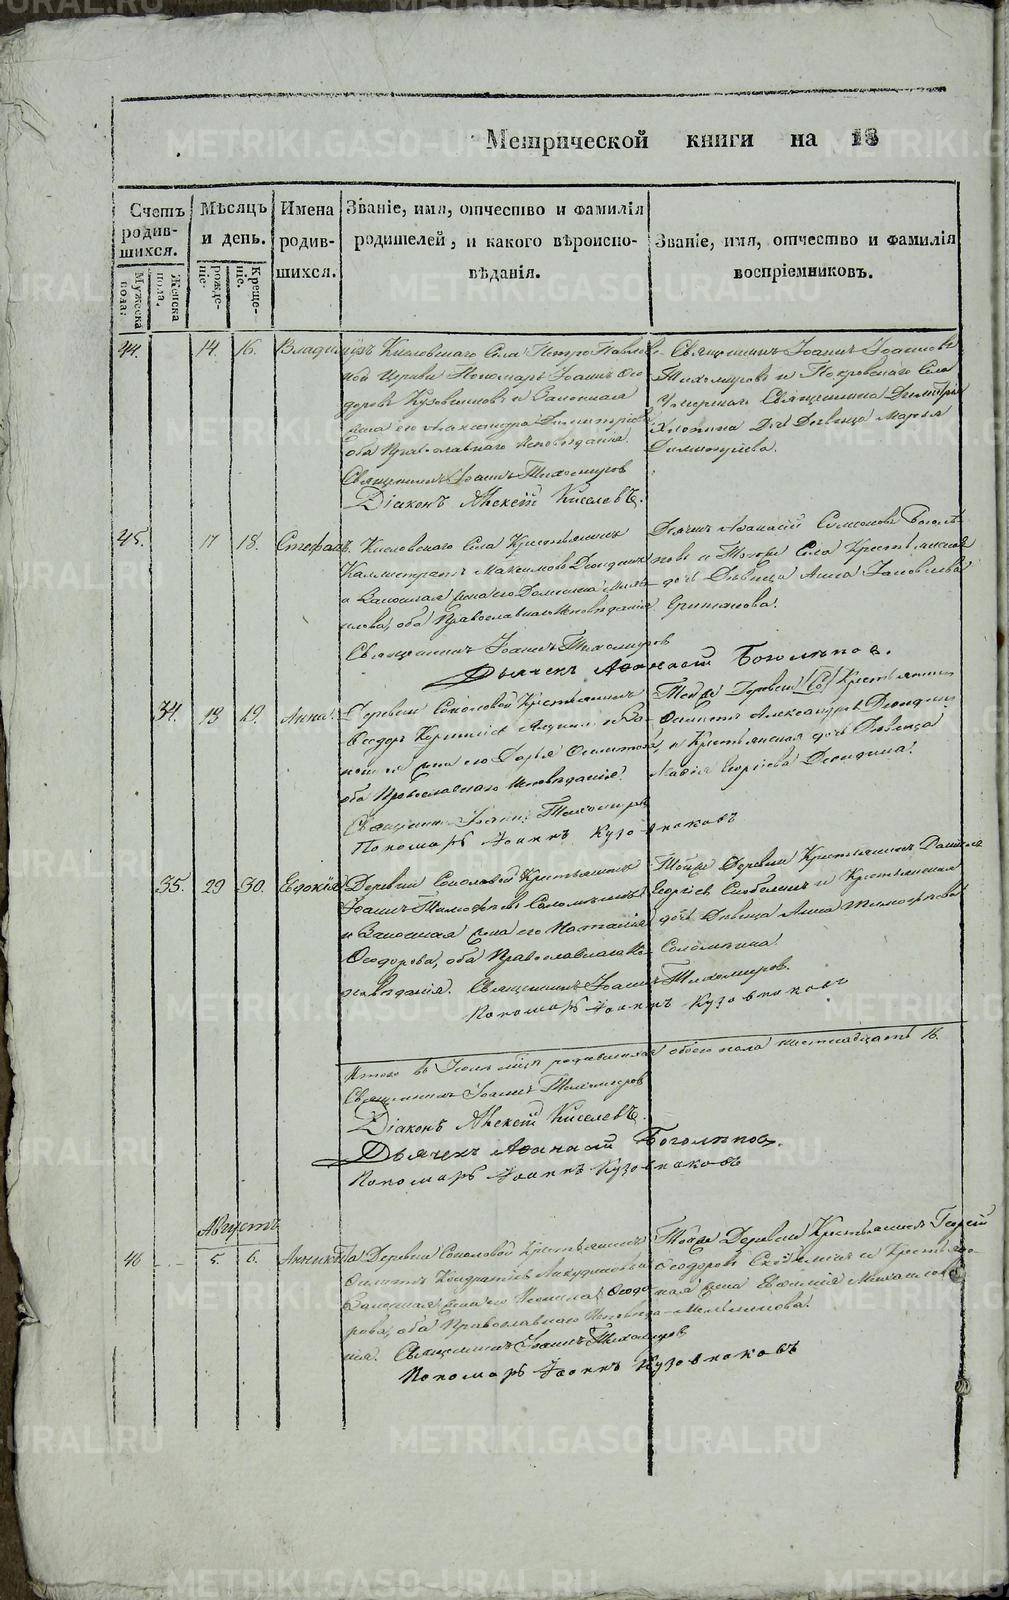 Метрической книги на 18
Счетъ родившихся.
Мужеска пола.
Женска пола.
Мѣсяцъ и день.
рожденіе.
Крещеніе.
Имена родившихся.
Званіе, имя, отчество и фамилія
родителей, и какого вѣроиспо-
вѣданія.
Званіе, имя, отчество и фамилія
воспріемниковъ.
44. 14. 16. Владимиръ
Кисловскаго Села Петро Павлов-
ской Церкви Пономарь Іоаннъ Ѳео-
доровъ Кузовниковъ и Законная
жена его Александра Димитріева
оба Православнаго Исповѣданія.
Священникъ Іоаннъ Тихомировъ
Діаконъ Алексѣй Киселевъ.
Священникъ Іоаннъ Іоанновъ
Тихомировъ и Покровскаго Села
умершаго Священника Димитрія
дочь Дѣвица Марья
Димитріева.
45. 17 18. Стефанъ.
Кисловскаго Села Крестьянинъ
Каллистратъ Максимовъ
и Законная жена его
оба Православнаго Исповѣданія
Священникъ Іоаннъ Тихомировъ
Дьячекъ Аѳанасій Боголѣповъ.
Дьячекъ Аѳанасій Симеоновъ Боголѣ-
повъ и Тогоже Села Крестьянская
дочь Дѣвица Анна Іаковлева
34. 18 19. Анна.
Деревни Соколовой Крестьянинъ
Ѳеодоръ и За-
конная жена его Дарья
оба Православнаго Исповѣданія.
Священникъ Іоаннъ Тихомировъ
Пономарь Іоаннъ Кузовниковъ
Тойже Деревни Крестьянинъ
Александровъ
и Крестьянская дочь Дѣвица
Георгіева
35. 29 30. Евдокія
Деревни Соколовой Крестьянинъ
Іоаннъ Тимоѳеевъ Соломеинъ
и Законная жена его Наталія
Ѳеодорова, оба Православнаго Ис-
повѣданія. Священникъ Іоаннъ Тихомировъ.
Пономарь Іоаннъ Кузовниковъ
Тойже Деревни Крестьянинъ Даніилъ
Георгіевъ и Крестьянская
дочь Дѣвица Анна Тимоѳеева
Соломеина.
Итого въ Іюлѣ мцѣ родившихся обоего пола шестнадцать 16.
Священникъ Іоаннъ Тихомировъ
Діаконъ Алексѣй Киселевъ.
Дьячекъ Аѳанасій Боголѣповъ.
Пономарь Іоаннъ Кузовниковъ
Августъ
46 5. 6. Аникита
Деревни Соколовой Крестьянинъ
Кондратіевъ
Законная жена его Неонила Ѳеодо-
рова, оба Православнаго Исповѣда-
нія. Священникъ Іоаннъ Тихомировъ
Пономарь Іоаннъ Кузовниковъ
Тойже Деревни Крестьянинъ Георгій
Ѳеодоровъ и Крестьян-
ская жена Евфимія Михаилова
METRIKI.GASO-URAL.RU